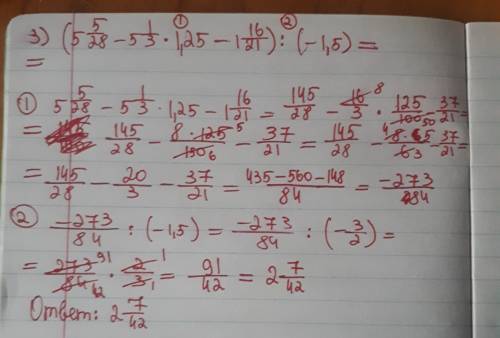 3) (5 5/28 - 5 1/3 · 1,25 - 1 16/21) : (-1,5) =
① ②
=
① 5 5/28 - 5 1/3 · 1,25 - 1 16/21 = 145/28 - 16/3 · 125/100 - 37/21 =
8 50
= 145/28 - 8·125/150 - 37/21 = 145/28 - 8·5/63 - 37/21 =
5 6 4
= 145/28 - 20/3 - 37/21 = (435-560-148)/84 = -273/84
② -273/84 : (-1,5) = -273/84 : (-3/2) =
= 273/84 · 2/3 = 91/42 = 2 7/42
91 42 1 1
Ответ: 2 7/42